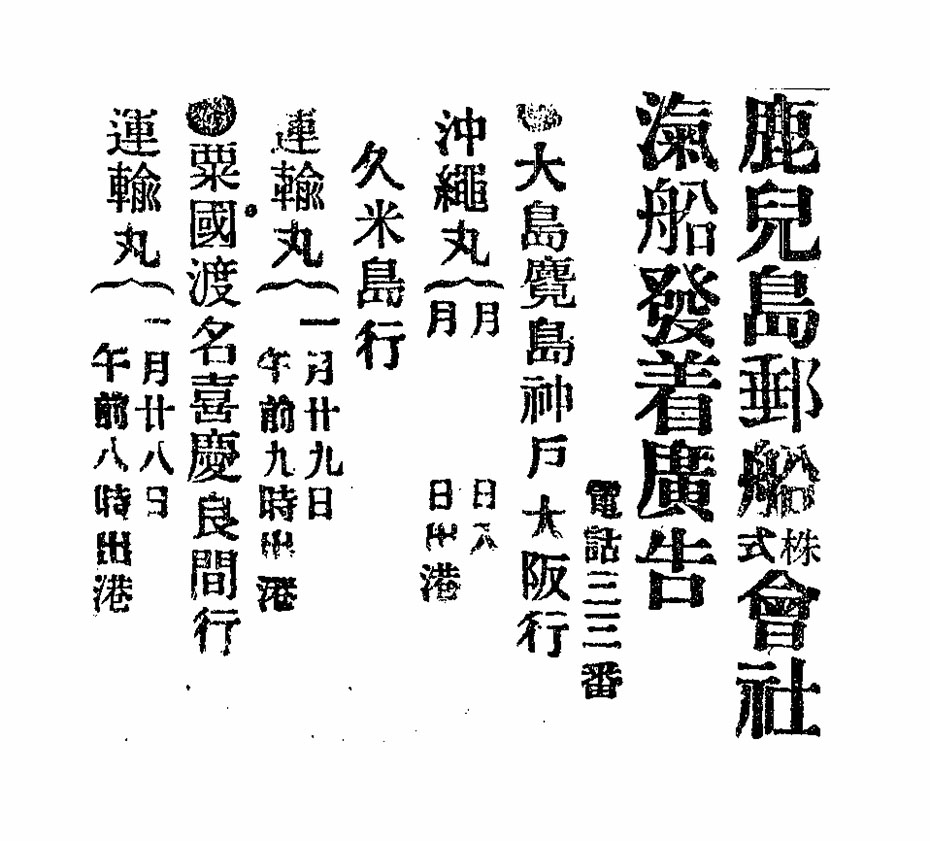 鹿兒島郵船株式會社
滊船發着廣告
電話三三番
●大島鹿兒島神戶大阪行
沖繩丸
月 日入
月 日出港
久米島行
運輸丸
一月廿九日
午前九時出港
●粟國渡名喜慶良間行
運輸丸
一月廿八日
午前八時出港